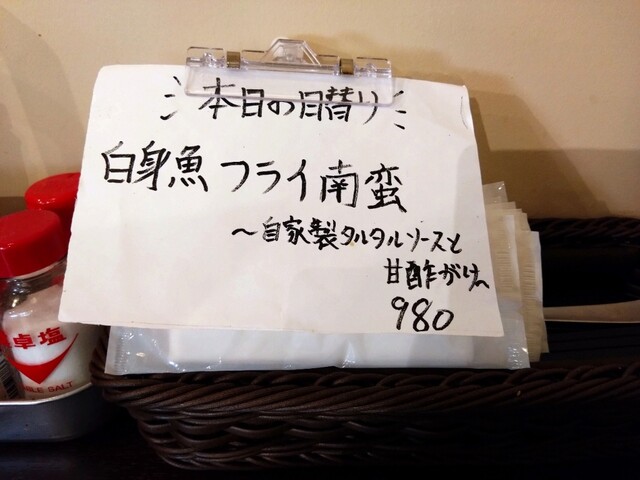 本日の日替り
白身魚フライ南蛮
〜自家製タルタルソースと
甘酢がけ〜
980
卓塩
TABLE SALT